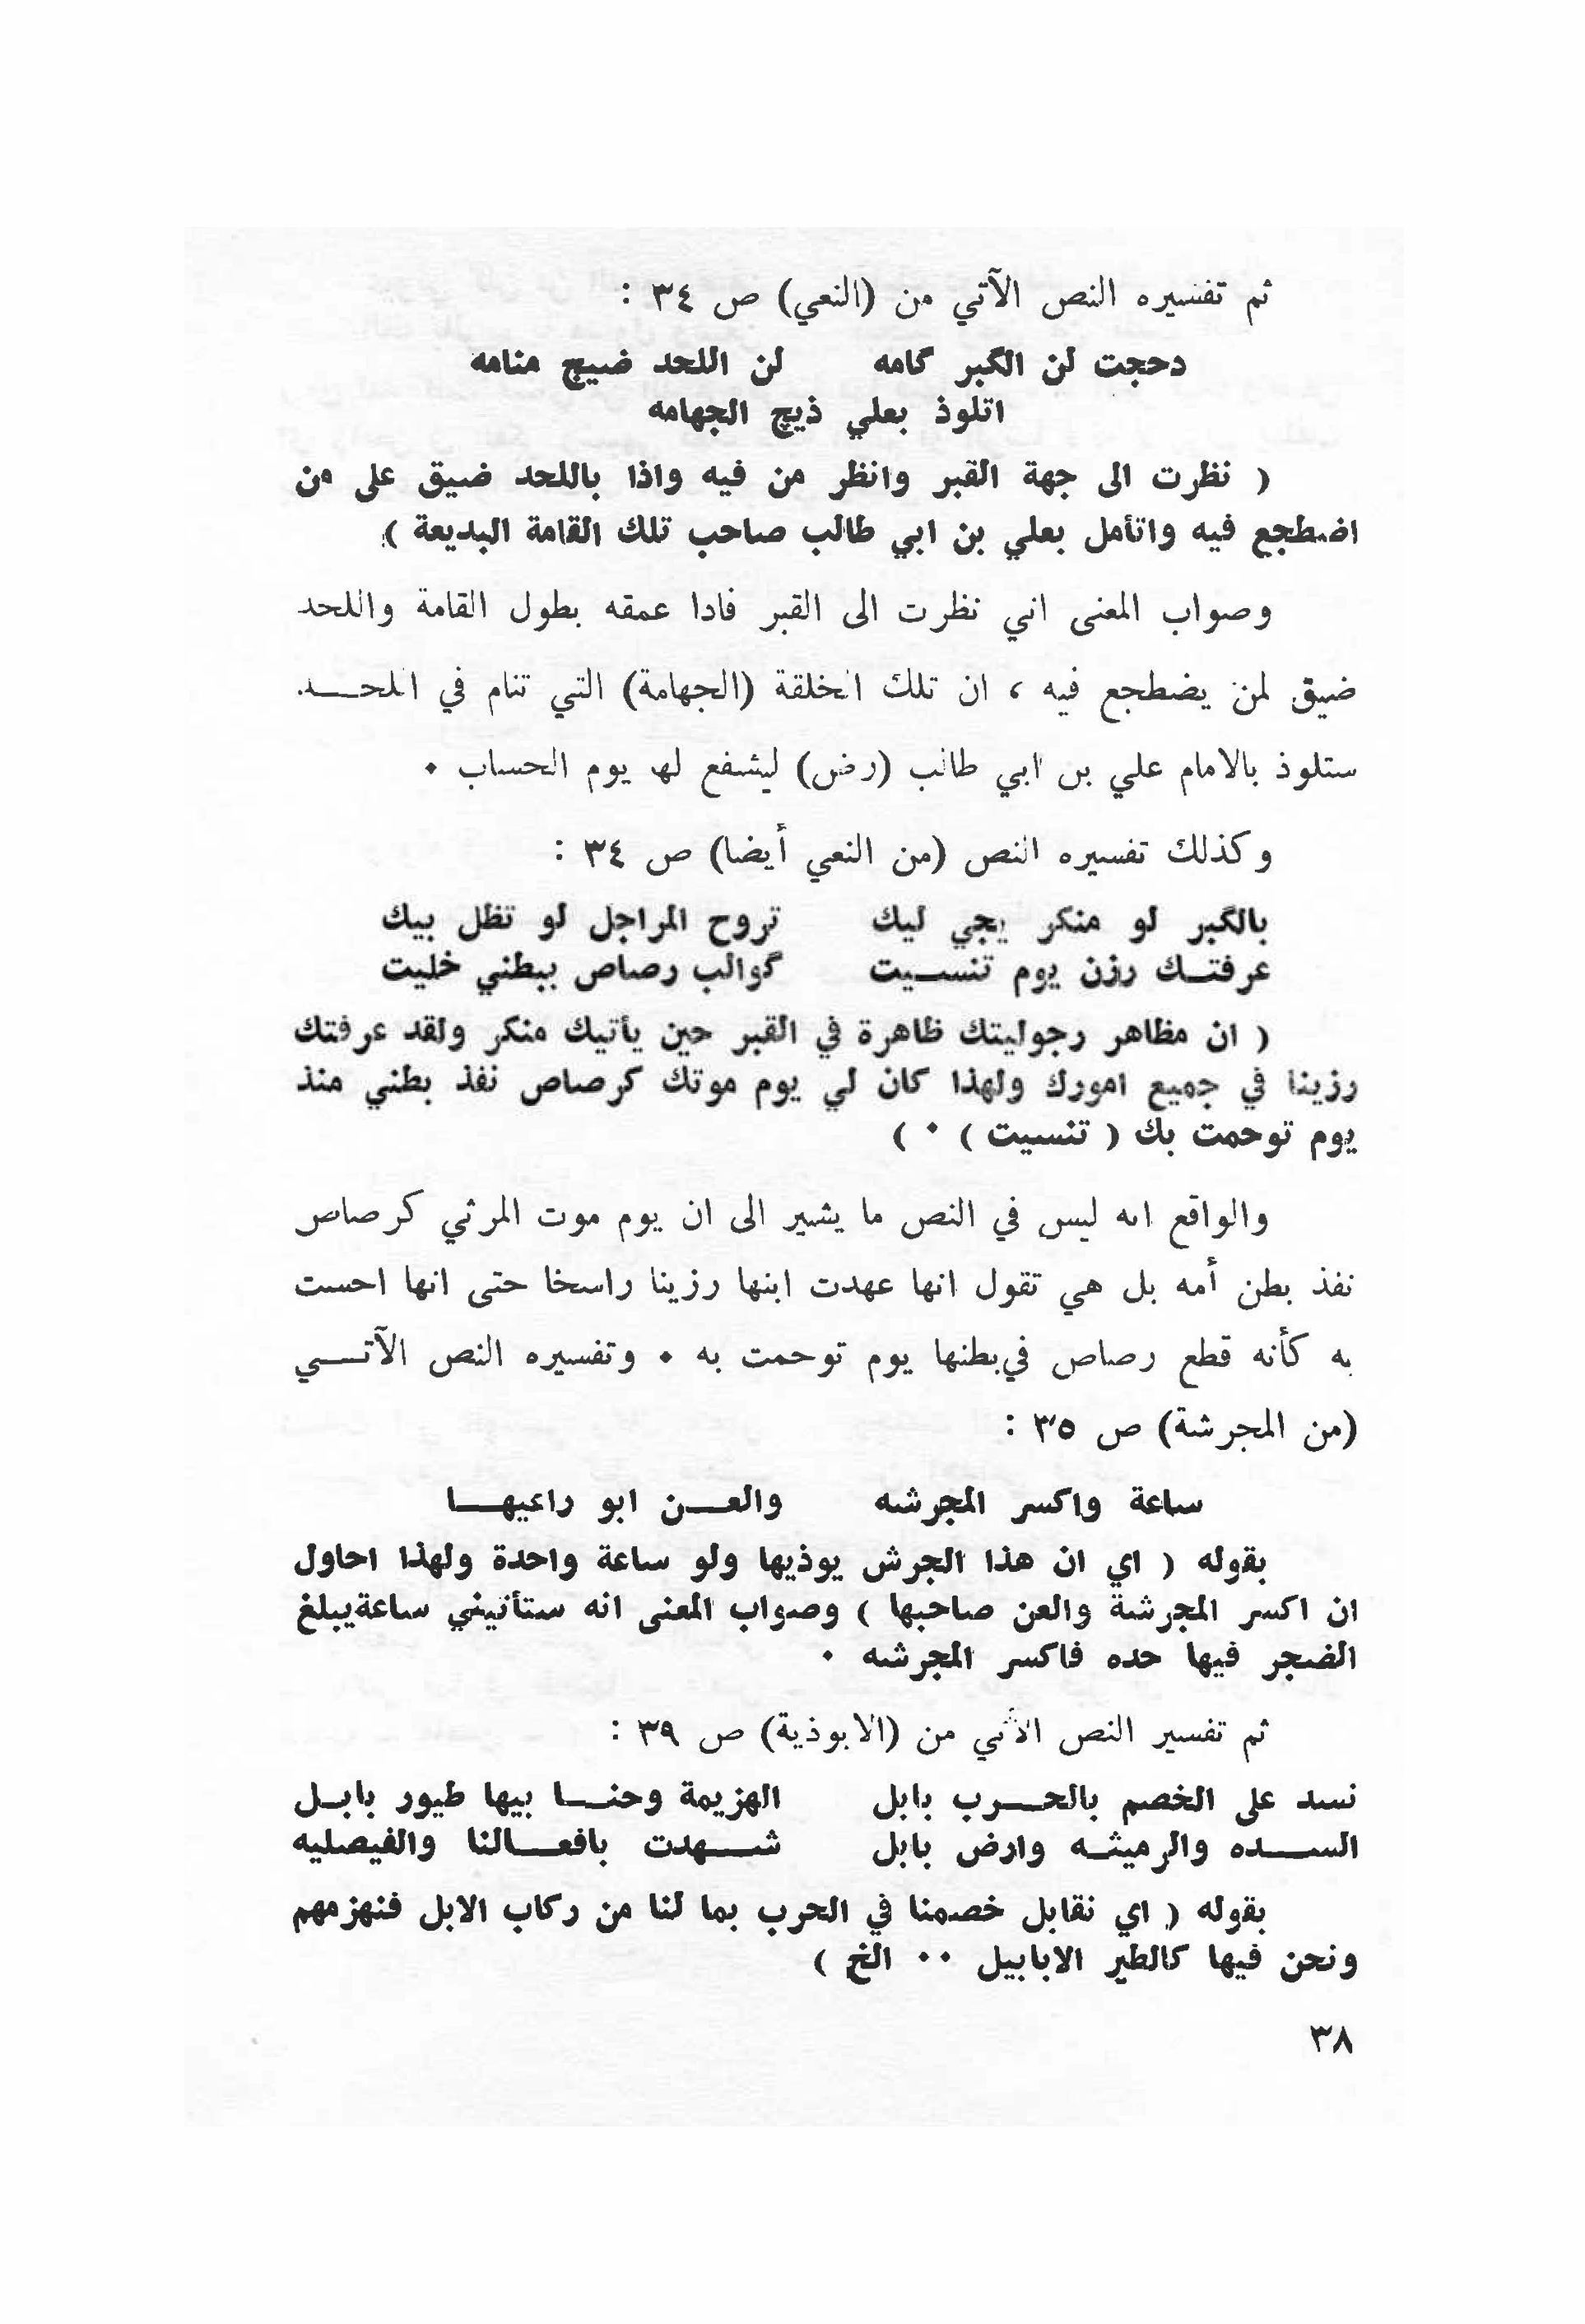 ثم تفسيره النص الآتي من (النعي) ص ٣٤ :
دحجت لن الگبر گامه لن اللحد ضيج منامه
اتلوذ بعلي ذيچ الجهامه
( نظرت الى جهة القبر وانظر من فيه واذا باللحد ضيق على من
اضطجع فيه واتأمل بعلي بن ابي طالب صاحب تلك القامة البديعة )
وصواب المعنى اني نظرت الى القبر فاذا عمقه بطول القامة واللحد
ضيق لمن يضطجع فيه ، ان تلك الخلقة (الجهامة) التي تنام في اللحـــد
ستلوذ بالامام علي بن ابي طالب (رض) ليشفع لها يوم الحساب ٠
وكذلك تفسيره النص (من النعي أيضا) ص ٣٤ :
بالگبر لو منكر يجي ليك تروح المراجل لو تظل بيك
عرفتـك رزن يوم تنســيت گوالب رصاص ببطني خليت
( ان مظاهر رجوليتك ظاهرة في القبر حين يأتيك منكر ولقد عرفتك
رزينا في جميع امورك ولهذا كان لي يوم موتك كرصاص نفذ بطني منذ
يوم توحمت بك ( تنسيت ) ٠ )
والواقع انه ليس في النص ما يشير الى ان يوم موت المرثي كرصاص
نفذ بطن أمه بل هي تقول انها عهدت ابنها رزينا راسخا حتى انها احست
به كأنه قطع رصاص في بطنها يوم توحمت به ٠ وتفسيره النص الآتـــي
(من المجرشة) ص ٣٥ :
ساعة واكسر المجرشه والعـــن ابو راعيهـــا
بقوله ( اي ان هذا الجرش يوذيها ولو ساعة واحدة ولهذا احاول
ان اكسر المجرشة والعن صاحبها ) وصواب المعنى انه ستأتيني ساعة يبلغ
الضجر فيها حده فاكسر المجرشه ٠
ثم تفسير النص الآتي من (الابوذية) ص ٣٩ :
نسد على الخصم بالحـــرب بابل الهزيمة وحنـــا بيها طيور بابـل
الســـده والرميثـه وارض بابل شـــهدت بافعـــالنا والفيصليه
بقوله ( اي نقابل خصمنا في الحرب بما لنا من ركاب الابل فنهزمهم
ونحن فيها كالطير الابابيل ٠٠ الخ )
٣٨